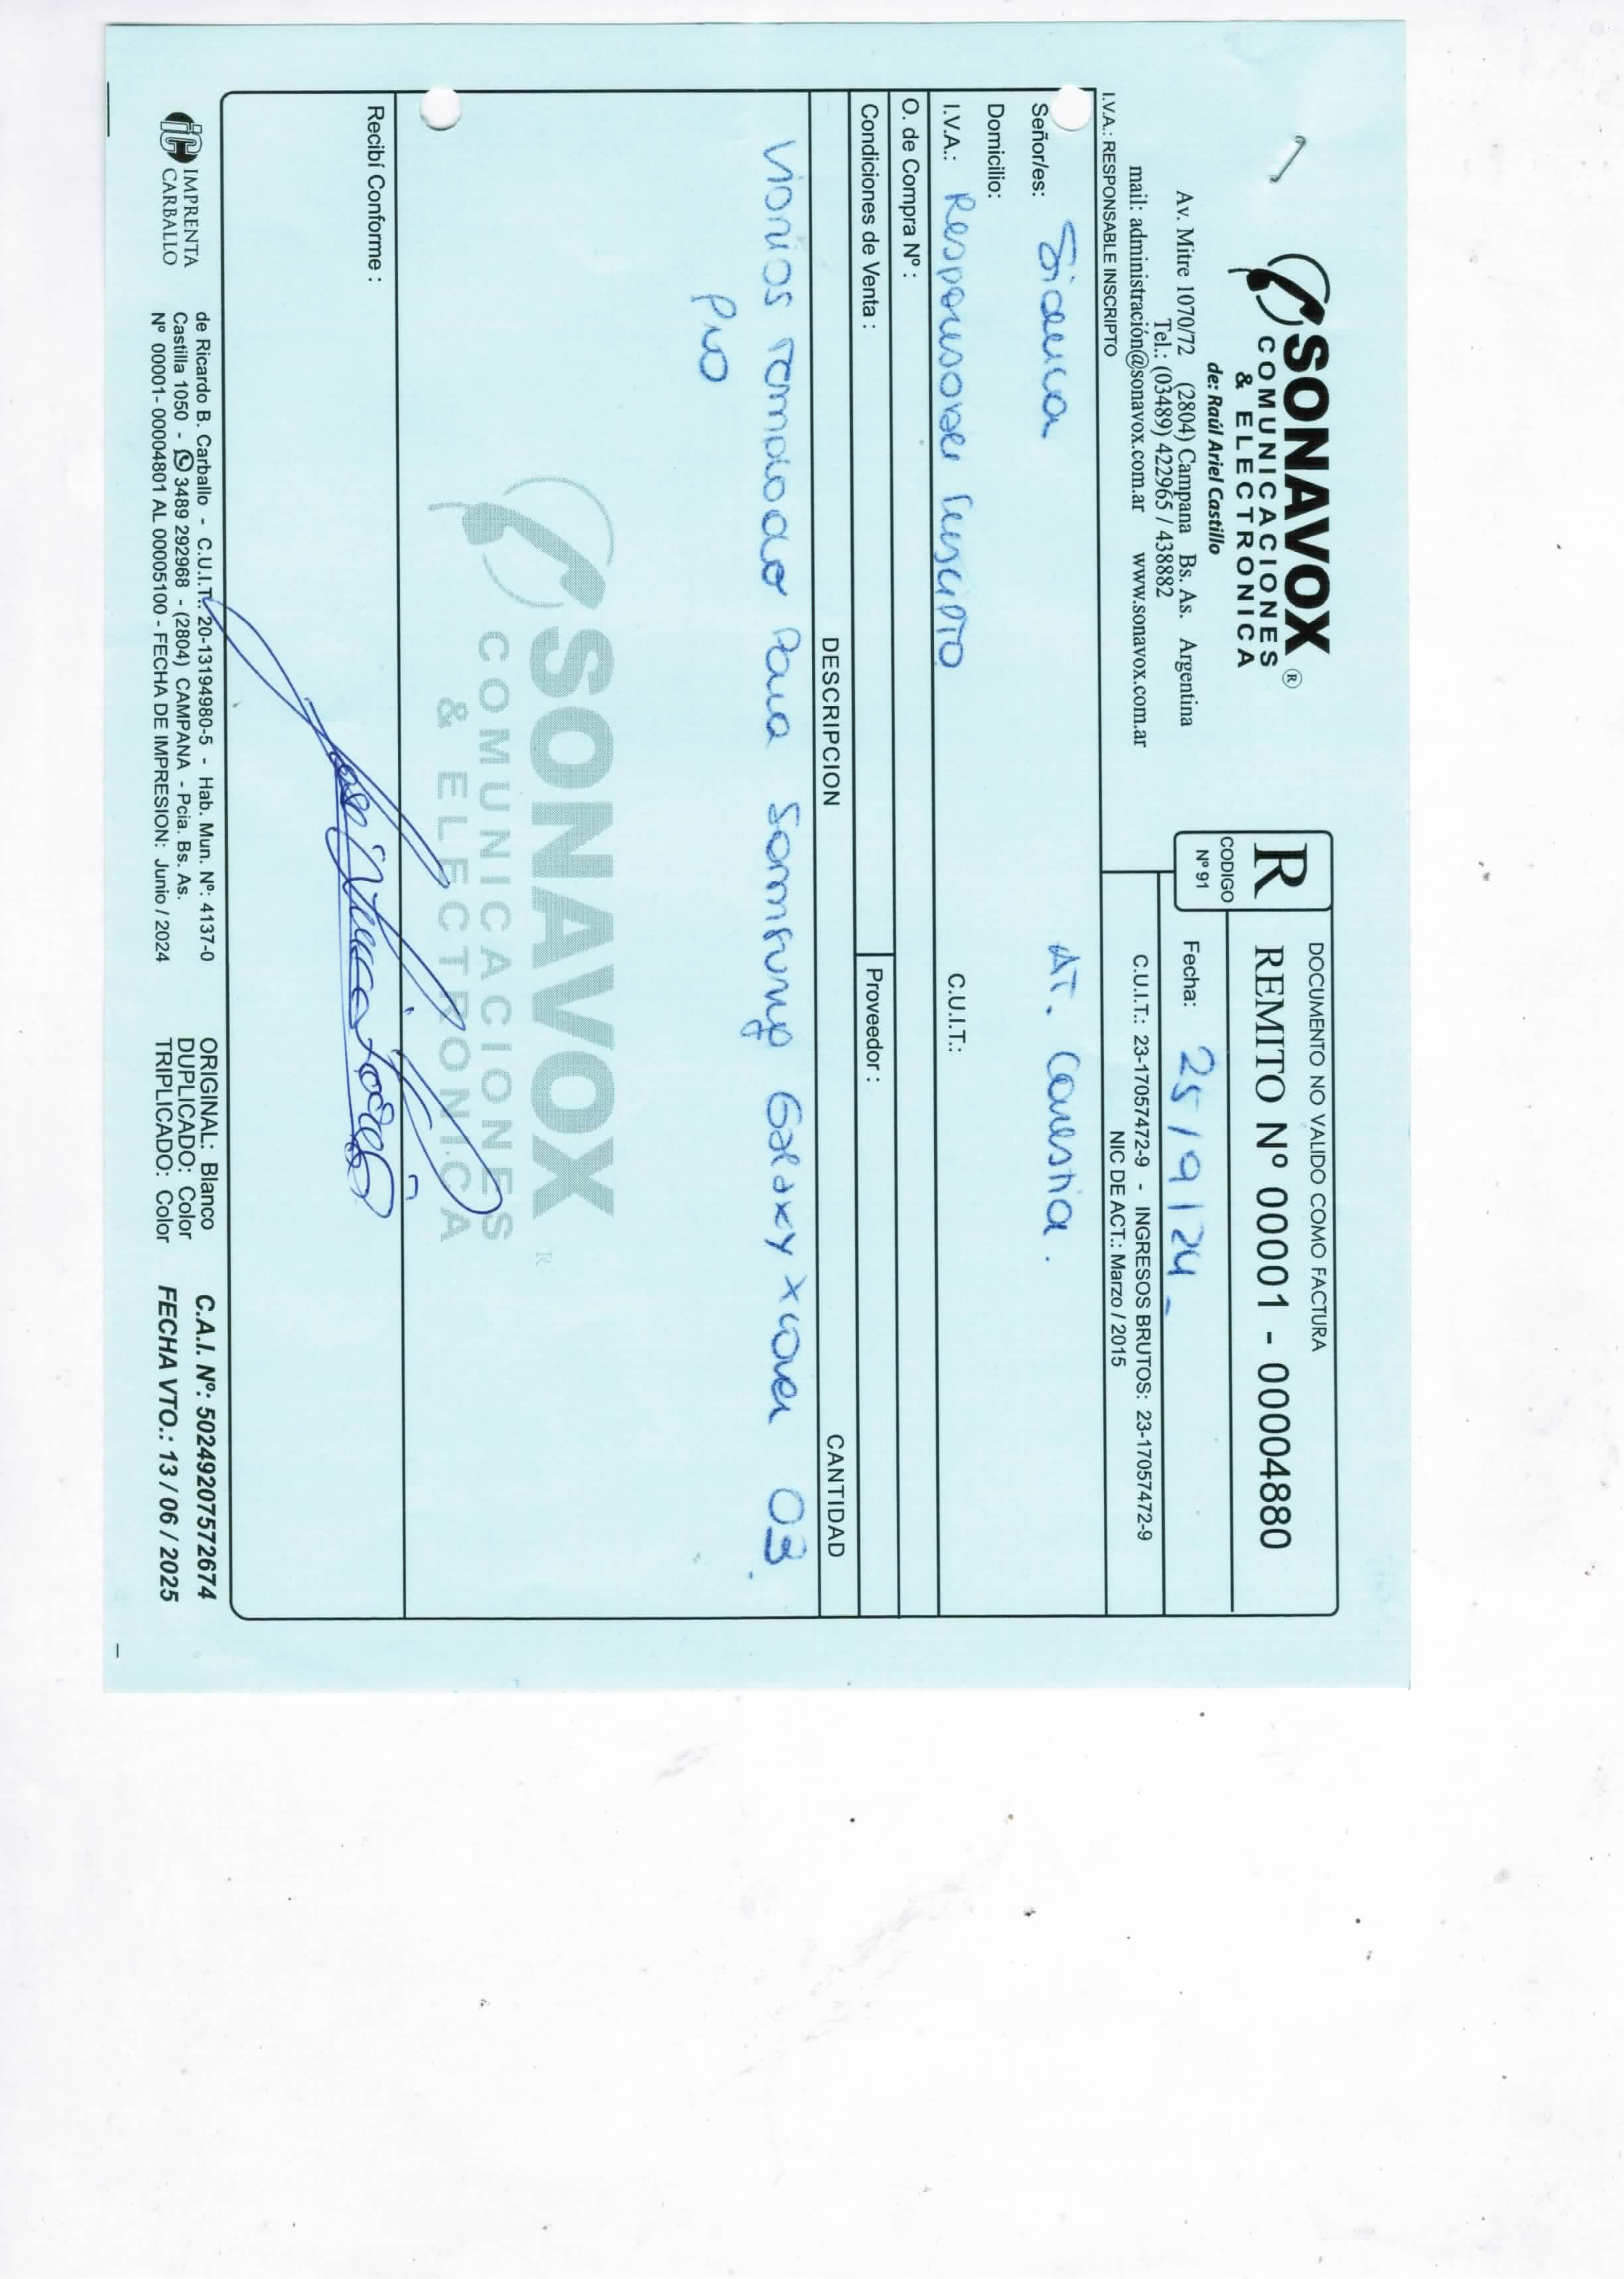 SONAVOX ®
COMUNICACIONES
& ELECTRONICA
de: Raúl Ariel Castillo
Av. Mitre 1070/72 (2804) Campana Bs. As. Argentina
Tel.: (03489) 422965 / 438882
mail: administración@sonavox.com.ar www.sonavox.com.ar
I.V.A.: RESPONSABLE INSCRIPTO
R
CODIGO
Nº 91
DOCUMENTO NO VALIDO COMO FACTURA
REMITO Nº 00001 - 00004880
Fecha: 25/9/24
C.U.I.T.: 23-17057472-9 - INGRESOS BRUTOS: 23-17057472-9
NIC DE ACT.: Marzo / 2015
Señor/es: Siderca AT. Carestia.
Domicilio:
I.V.A.: Responsable Inscripto C.U.I.T.:
O. de Compra Nº :
Condiciones de Venta : Proveedor :
DESCRIPCION CANTIDAD
Vidrios Templado Para Samsung Galaxy Xcover 03
Pro
SONAVOX R
COMUNICACIONES
& ELECTRONICA
Recibí Conforme :
IMPRENTA
CARBALLO
de Ricardo B. Carballo - C.U.I.T.: 20-13194980-5 - Hab. Mun. Nº: 4137-0
Castilla 1050 - 3489 292968 - (2804) CAMPANA - Pcia. Bs. As.
Nº 00001- 00004801 AL 00005100 - FECHA DE IMPRESION: Junio / 2024
ORIGINAL: Blanco
DUPLICADO: Color
TRIPLICADO: Color
C.A.I. Nº: 50249207572674
FECHA VTO.: 13 / 06 / 2025